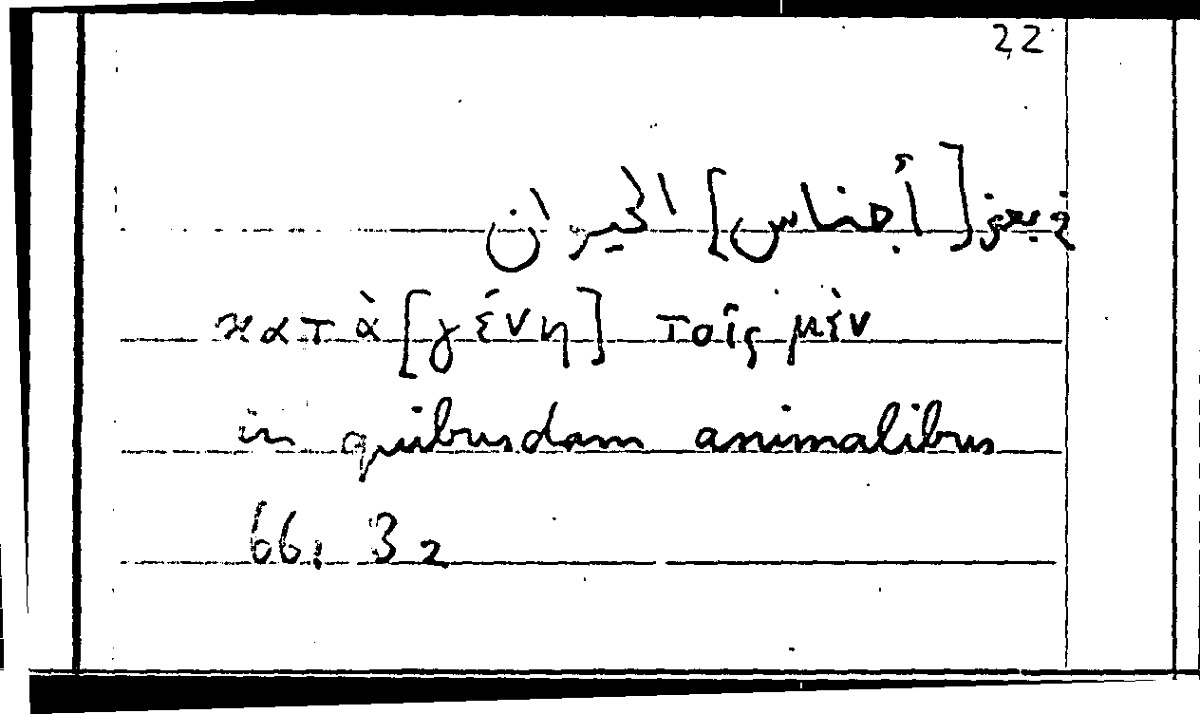 22
في بعض [أجناس] الحيوان
κατὰ [γένη] τοῖς μὲν
in quibusdam animalibus
66, 32